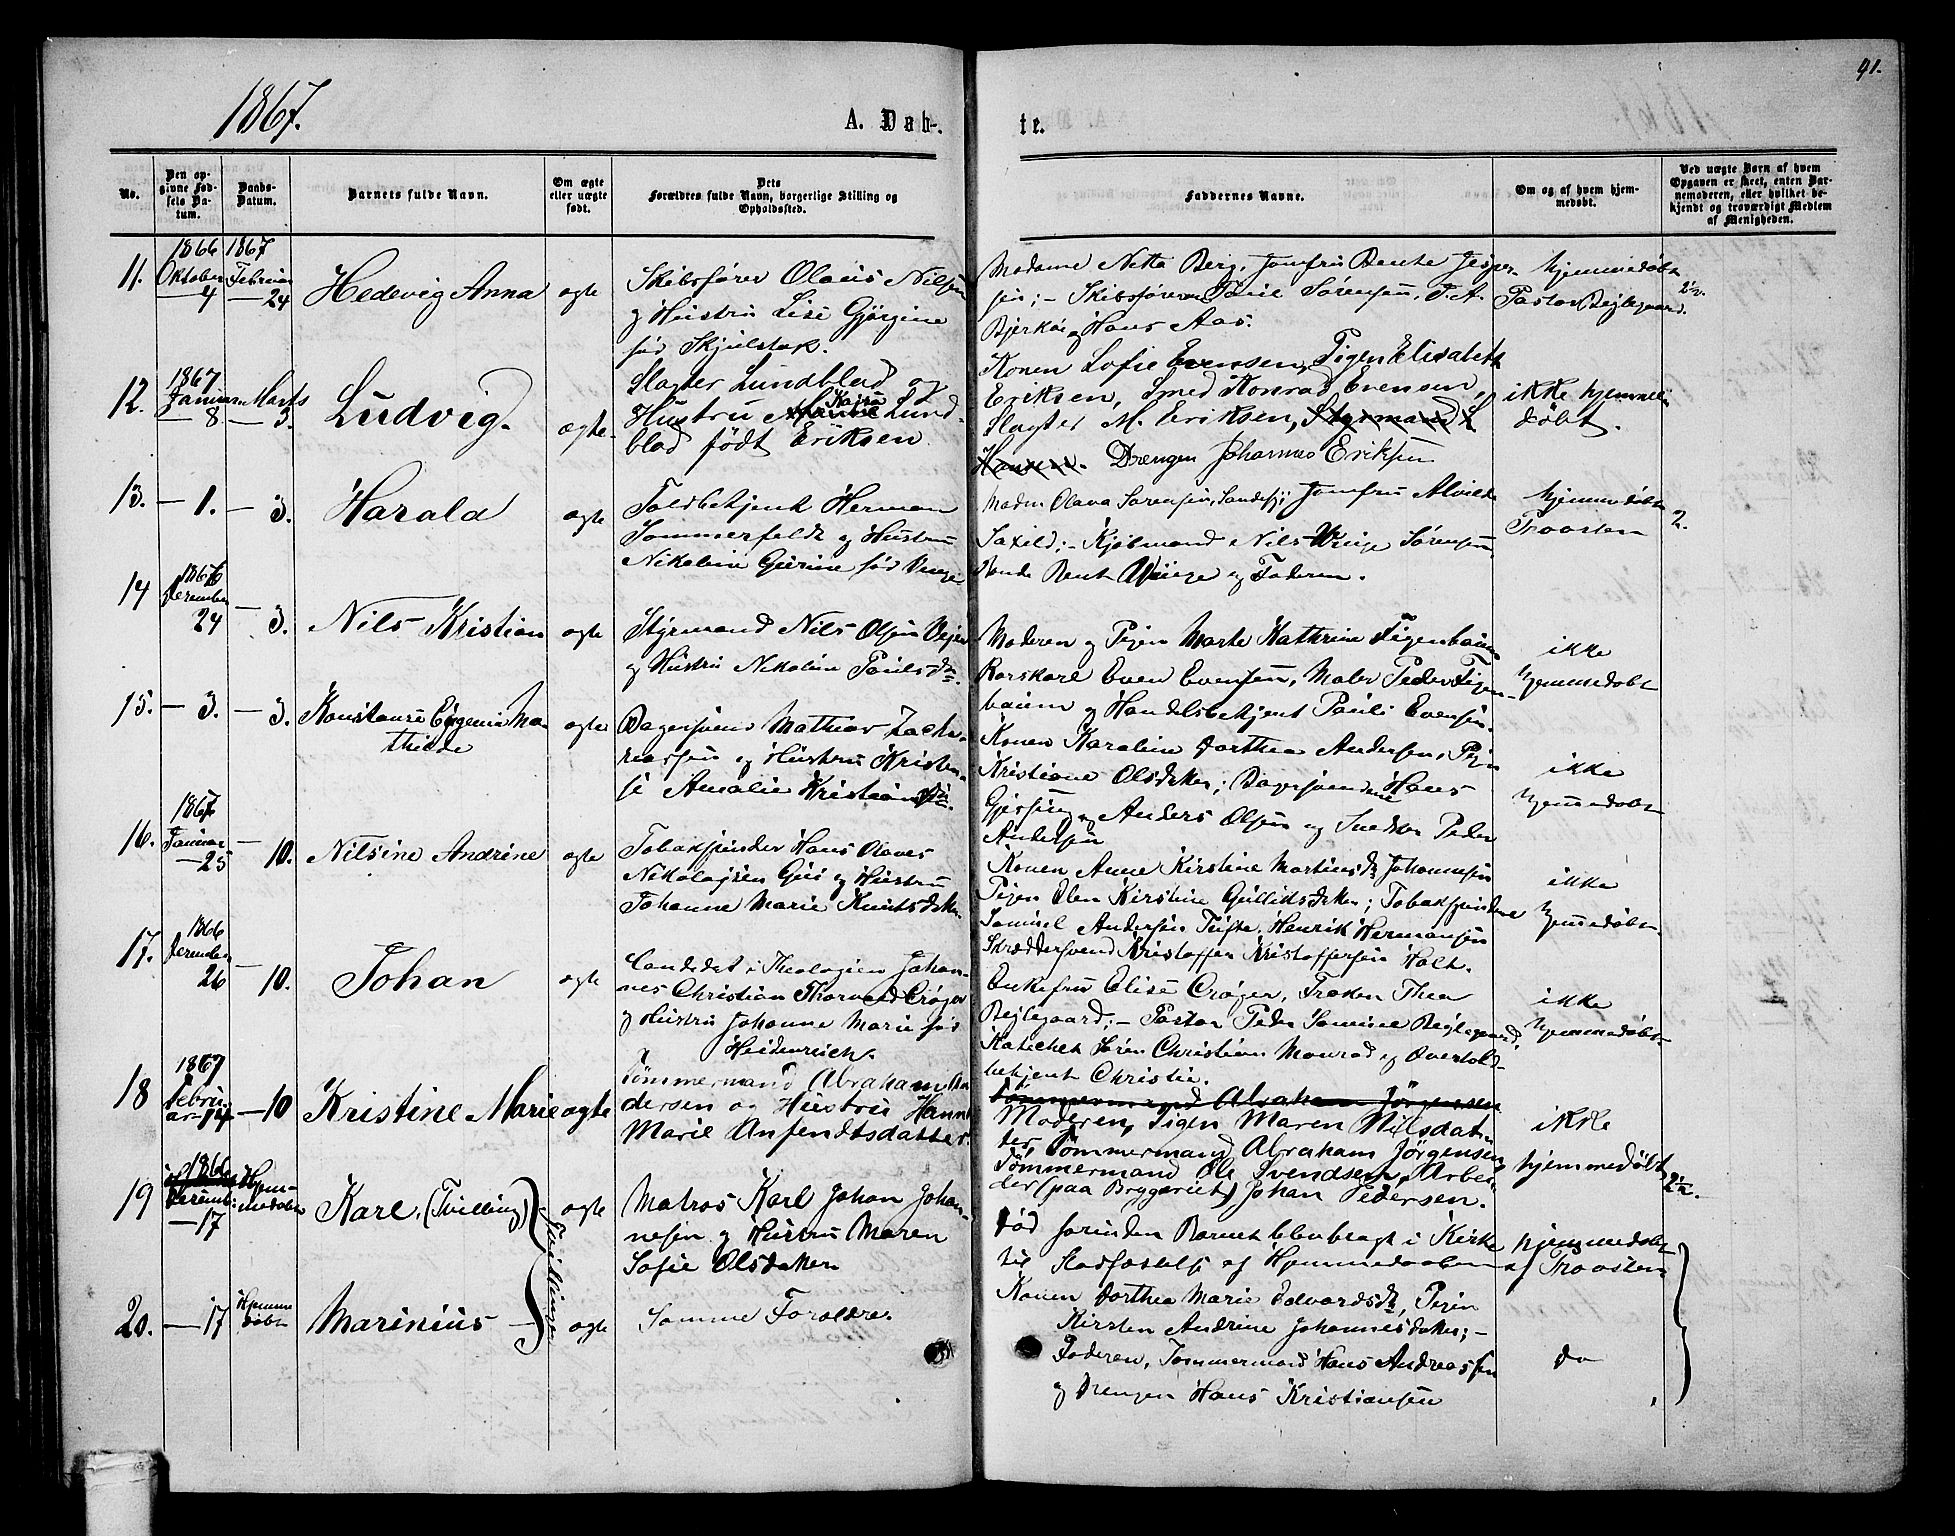 1867.
A. Døb-
te.
91.
No.
Den op-
givne Fød-
sels Da-
tum.
Daabs-
Datum.
Barnets fulde Navn.
Om ægte
eller uægte
født.
Dets
Forældres fulde Navn, borgerlige Stilling og
Opholdssted.
Faddernes Navne.
Om og af hvem hjem-
medøbt.
Ved uægte Børn af hvem
Opgaven er skeet, enten Bar-
nemoderen, eller hvilket be-
kjendt og troværdigt Medlem
af Menigheden.
11.
1866
Oktober
4
1867
Februar
24
Hedevig Anna
ægte
Skibsfører Olaus Nilsen
og Hustru Lise Gjørgine
fød Skjelstak.
Madame Netta Berg, Jomfru Bente Jesper-
sen; – Skibsførerne Paul Sørensen, J. A.
Bjerkøe og Hans Aas.
hjemmedøbt
Pastor Bejlegaard.
2½.
12.
1867
Januar
8
Marts
3.
Ludvig.
ægte
Slagter Lundblad og
Hustru Kajsa Lund-
blad født Eriksen.
Konen Sofie Evensen, Pigen Elisabeth
Eriksen, Smed Konrad Evensen,
Slagter M. Eriksen, Styrmand L
Hansen. Drengen Johannes Eriksen
ikke hjemme-
døbt.
13.
– 1.
– 3.
Harald
ægte
Toldbetjent Herman
Sommerfeldt og Hustru
Nikoline Gurine fød Unge
Madm Olava Sørensen, Sandefj; Jomfru Alvilde
Saxild; – Kjøbmand Nils Sørensen
Bent og Faderen.
hjemmedøbt
Troosten
2.
14
1866
December
24
– 3.
Nils Kristian
ægte
Styrmand Nils Olsen Vejen
og Hustru Nikoline Paulsdr.
Moderen og Pigen Marte Kathrine Figenbaum
Karskarl Even Evensen, Maler Peder Figen-
baum og Handelsbetjent Pauli Evensen.
ikke
hjemmedøbt
15.
– 3.
– 3.
Konstanse Eugenie Ma-
thilde
ægte
Bagersvend Mathias Zacha-
riassen og Hustru Kristen-
se Amalie Kristiansdr.
Konen Karoline Dorthea Andersen, Pigen
Kristiane Olsdatter; Bagersvendene Hans
Gjessing, Anders Olsen og Snedker Peder
Andersen
ikke
hjemmedøbt
16.
1867
Januar
25
– 10.
Nilsine Andrine
ægte
Tobakspinder Hans Olaves
Nikolajsen Gui og Hustru
Johanne Marie Knutsdatter.
Konen Anne Kirstine Martinsdr Johannesen
Pigen Elen Kirstine Gullidsdatter; Tobakspinderne
Samuel Andersen Tufte, Henrik Hermansen
Skræddersvend Kristoffer Kristoffersen Holt.
ikke
hjemmedøbt.
17.
1866
December
26
– 10.
Johan
ægte
Candidat i Theologien Johan-
nes Christian Thorvald Crøger
og Hustru Johanne Marie fød
Heidenreich.
Enkefru Elise Crøger, Frøken Thea
Bejlegaard; – Pastor Peder Samuel Bejlegaard,
Katechet Søren Christian Monrad og Overtold-
betjent Christie.
ikke
hjemmedøbt
18
1867
Febru-
ar – 14
– 10
Kristine Marie
ægte
Tømmermand Abraham An-
dersen og Hustru Hanne
Marie Anfendtsdatter.
Tømmermand Abraham Jörgensen
Moderen, Pigen Maren Nilsdat-
ter, Tømmermand Abraham Jörgensen
Tømmermand Ole Svendsen, Arbei-
der (paa Bryggeriet) Johan Pedersen.
ikke
hjemmedøbt
19
1866
Decemb.
– 17
Hjem-
medøbt
Karl, (Tvilling)
Tvillinger
ægte
Matros Karl Johan Johan-
nesen og Hustru Maren
Sofie Olsdatter
død forinden Barnet blev bragt i Kirke
til Stadfæstelse af Hjemmedaaben
hjemmedøbt
af Troosten
2½.
20.
– 17
Hjemme
døbt
Marinius
ægte
Samme Forældre.
Konen Dorthea Marie Edvardsdr, Pigen
Kirsten Andrine Johannesdatter; –
Faderen, Tømmermand Hans Andreassen
og Drengen Hans Kristiansen
do